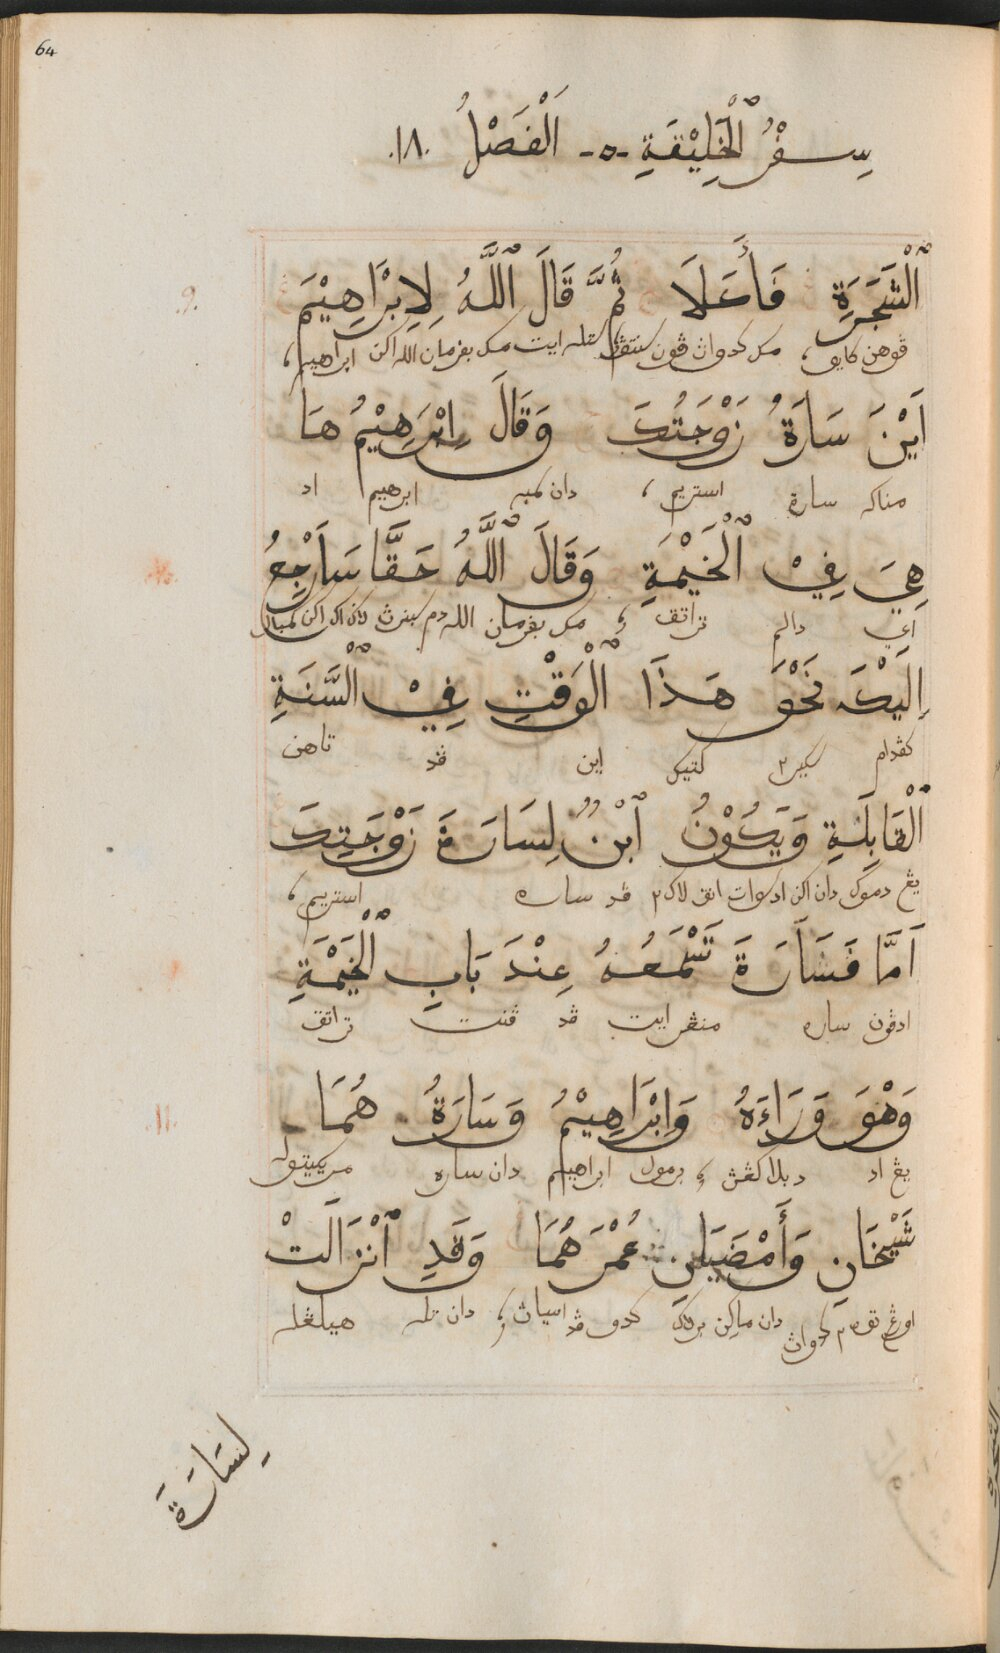 64
سِفْرُ ٱلْخَلِيْقَةِ -٥- اَلْفَصْلُ .١٨.
ٱلْشَجَرَةِ فَأَكَلَا ثُمَّ قَالَ ٱللَّهُ لِاِبْرَاهِيْمَ
ڤوهن كايو، مك كدوات ڤون سنتڤ ستله ايت مك بفرمان الله اكن ابراهيم،
اَيْنَ سَارَةُ زَوْجَتُكَ وَقَالَ اِبْرَهِيْمُ هَا
مناكه سارة استريم، دان كمبه ابرهيم اد
هِيَ فِيْ ٱلْخَيْمَةِ وَقَالَ ٱللَّهُ حَقَّا سَاَرْجِعُ
اي دالم تراتق، مك بفرمان الله دم سبنرڽ اكن كمبال
اِلَيْكَ نَحْوَ هَذَا ٱلْوَقْتِ فِيْ ٱلْسَّنَةِ
كڤدام سكير٢ كتيك اين ڤد تاهن
ٱلْقَابِلَةِ وَيَكُوْنُ ٱبْنٌ لِسَارَةَ زَوْجَتِكَ
يڠ دموك دان اكن اد انق لاك٢ ڤد ساره استريم،
اَمَّا فَسَاَرَةَ تَسْمَعُهُ عِنْدَ بَابِ ٱلْخَيْمَةِ
ادڤون ساره منڠر ايت ڤد ڤنت تراتق
وَهْوَ وَرَاءَهُ وَاِبْرَاهِيْمُ وَسَارَةُ هُمَا
يڠ اد دبلاكڠڽ، برمول ابراهيم دان ساره
شَيْخَانِ وَأَمْضَيَانِ عُمْرَهُمَا وَقَدِ ٱنْزَالَتْ
اورڠ توه٢ كدوات دان ماكن كدو ڤد اسيات، دان تله هيلڠله
لِسَارَةَ
9.
11.